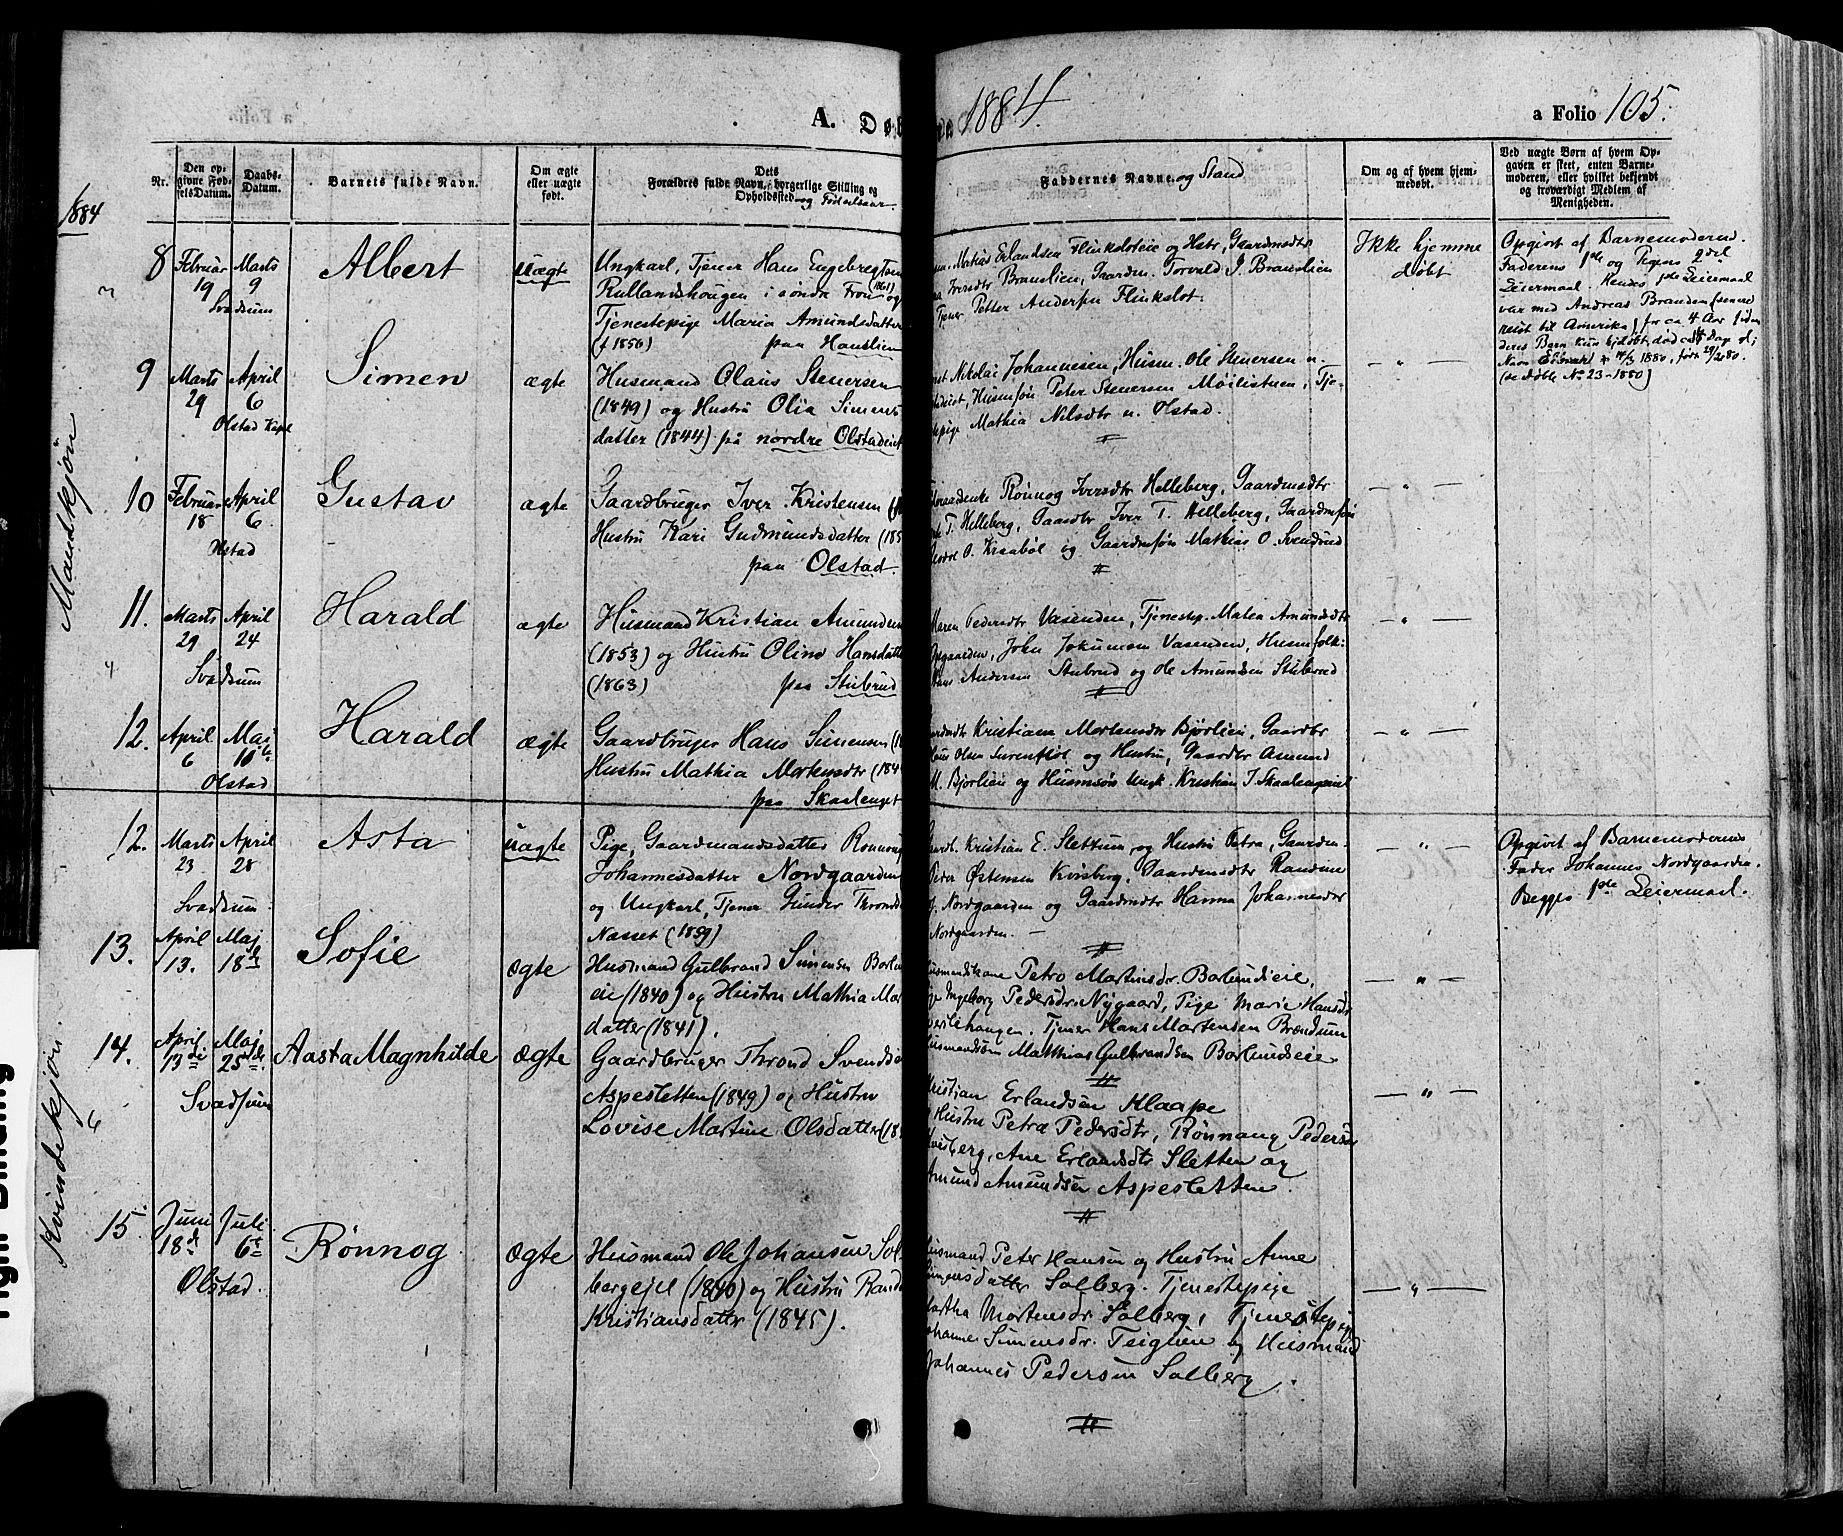 A. Døb
1884.
a Folio 105.
Nr.
Den op-
givne Fød-
selsDatum.
Daabs-
Datum.
Barnets fulde Navn.
Om ægte
eller uægte
født.
Dets
Forældres fulde Navn, borgerlige Stilling og
Opholdssted og Fødselsaar
Faddernes Navne og Stand
Om og af hvem hjem-
medøbt.
Ved uægte Børn af hvem Op-
gaven er skeet, enten Barne-
moderen, eller hvilket bekjendt
og troværdigt Medlem af
Menigheden.
1884
Mandkjøn
8
Februar
19
Marts
9
Svadsum
Albert
uægte
Ungkarl, Tjener Hans Engebregtsen
Rullandshougen i søndre Fron (1861) og
Tjenestepige Maria Amundsdatter
(f 1856) paa Hanslien
Matias Erlandsen Flinksloteie og Hstr, Gaardmdtr
Iversdtr Brauslien, Gaardm. Torvald J. Brauslien
Tjener Petter Andersen Flinkslot.
Ikke hjemme
døbt
Opgivet af Barnemoderen.
Faderens 1ste og Pigens 2det
Leiermaal. Hendes 1ste Leiermaal
var med Andreas Branden (senere
reist til Amerika) for ca 4 Aar siden
deres Barn
(se døbte No 23-1880)
9
Marts
29
April
6
Olstad Kapel
Simen
ægte
Husmand Olaus Stenersen
(1849) og Hustru Olia Simens
datter (1844) på nordre Olstadeiet
Nikolai Johannesen, Husm. Ole Stenersen n.
Husmsøn Peter Stenersen Møilistuen, Tje-
pige Mathia Nilsdtr n. Olstad.
— " —
10
Februar
18
April
6
Olstad
Gustav
ægte
Gaardbruger Iver Kristensen
Hustru Kari Gudmundsdatter
paa Olstad.
Rønnog Iversdtr Helleberg, Gaardmdtr
T. Helleberg, Gaardbr Iver T. Helleberg, Gaardmsøn
O. Kraabøl og Gaardmsøn Mathias O. Svendrud
— " —
11.
Marts
29
April
24
Svadsum
Harald
ægte
Husmand Kristian Amundsen
(1853) og Hustru Oline Hansdatter
(1863) paa Stubrud
Maren Pedersdtr Vasenden, Tjenestep. Malia Amundsdtr
Opgaarden, John Jokumsen Vasenden, Husmfolk
Hans Andersen Stubrud og Ole Amundsen Stubrud
— " —
12.
April
6
Mai
10de
Olstad
Harald
ægte
Gaardbruger Hans Simensen
Hustru Mathia Mortensdtr
paa Skaalenget
Kristiane Mortensdtr Bjørlien, Gaardbr
Olsen Surenflot og Hustru, Gaardbr Amund
M. Bjørlien og Husmsøn Ungk. Kristian J. Skaalengeiet
— " —
Kvindekjøn
12.
Marts
23
April
28
Svadsum
Asta
uægte
Pige, Gaardmandsdatter Rønnog
Johannesdatter Nordgaarden
og Ungkarl, Tjener Gunder Thronds
Næsset (1859)
Gaardb. Kristian E. Slettum og Hustru Petra, Gaardm.
Peder Østensen Kvisberg, Gaardmdtr Randine
J. Nordgaarden og Gaardmdtr. Hanna Johannesdtr
Nordgaarden.
— " —
Opgivet af Barnemoderens
Fader Johannes Nordgaarden.
Begges 1ste Leiermaal.
13.
April
13.
Maj
18de
Sofie
ægte
Husmand Gulbrand Simensen Borlunds
eie (1840) og Hustru Mathia Mar
datter (1841).
Husmandskone Petra Martinsdr. Borlundseie,
Pige Ingeborg Pedersdr. Nygaard, Pige Marie Hansdr
Tjener Hans Mortensen Brændum
Husmandssøn Matthias Gulbrandsen Borlundseie
— " —
14.
April
13de
Maj
25de.
Svadsum
Aasta Magnhilde
ægte
Gaardbruger Thrond Svendsen
Aspesletten (1849) og Hustru
Lovise Martine Olsdatter
Kristian Erlandsen Klaape
og Hustru Petra Pedersdtr, Rønnaug Pedersdtr
Kvisberg, Ane Erlandsdtr Sletten og
Amund Amundsen Aspesletten.
— " —
15.
Juni
18de
Juli
6te
Olstad.
Rønnog
ægte
Husmand Ole Johansen Sol
bergeje (1840) og Hustru Randi
Kristiansdatter (1845).
Husmand Peter Hansen og Hustru Anne
Simensdatter Solberg. Tjenestepige
Martha Mortensdr. Solberg, Tjenestepige
Johanne Simensdr. Teighen og Husmand
Johannes Pedersen Solberg.
— " —